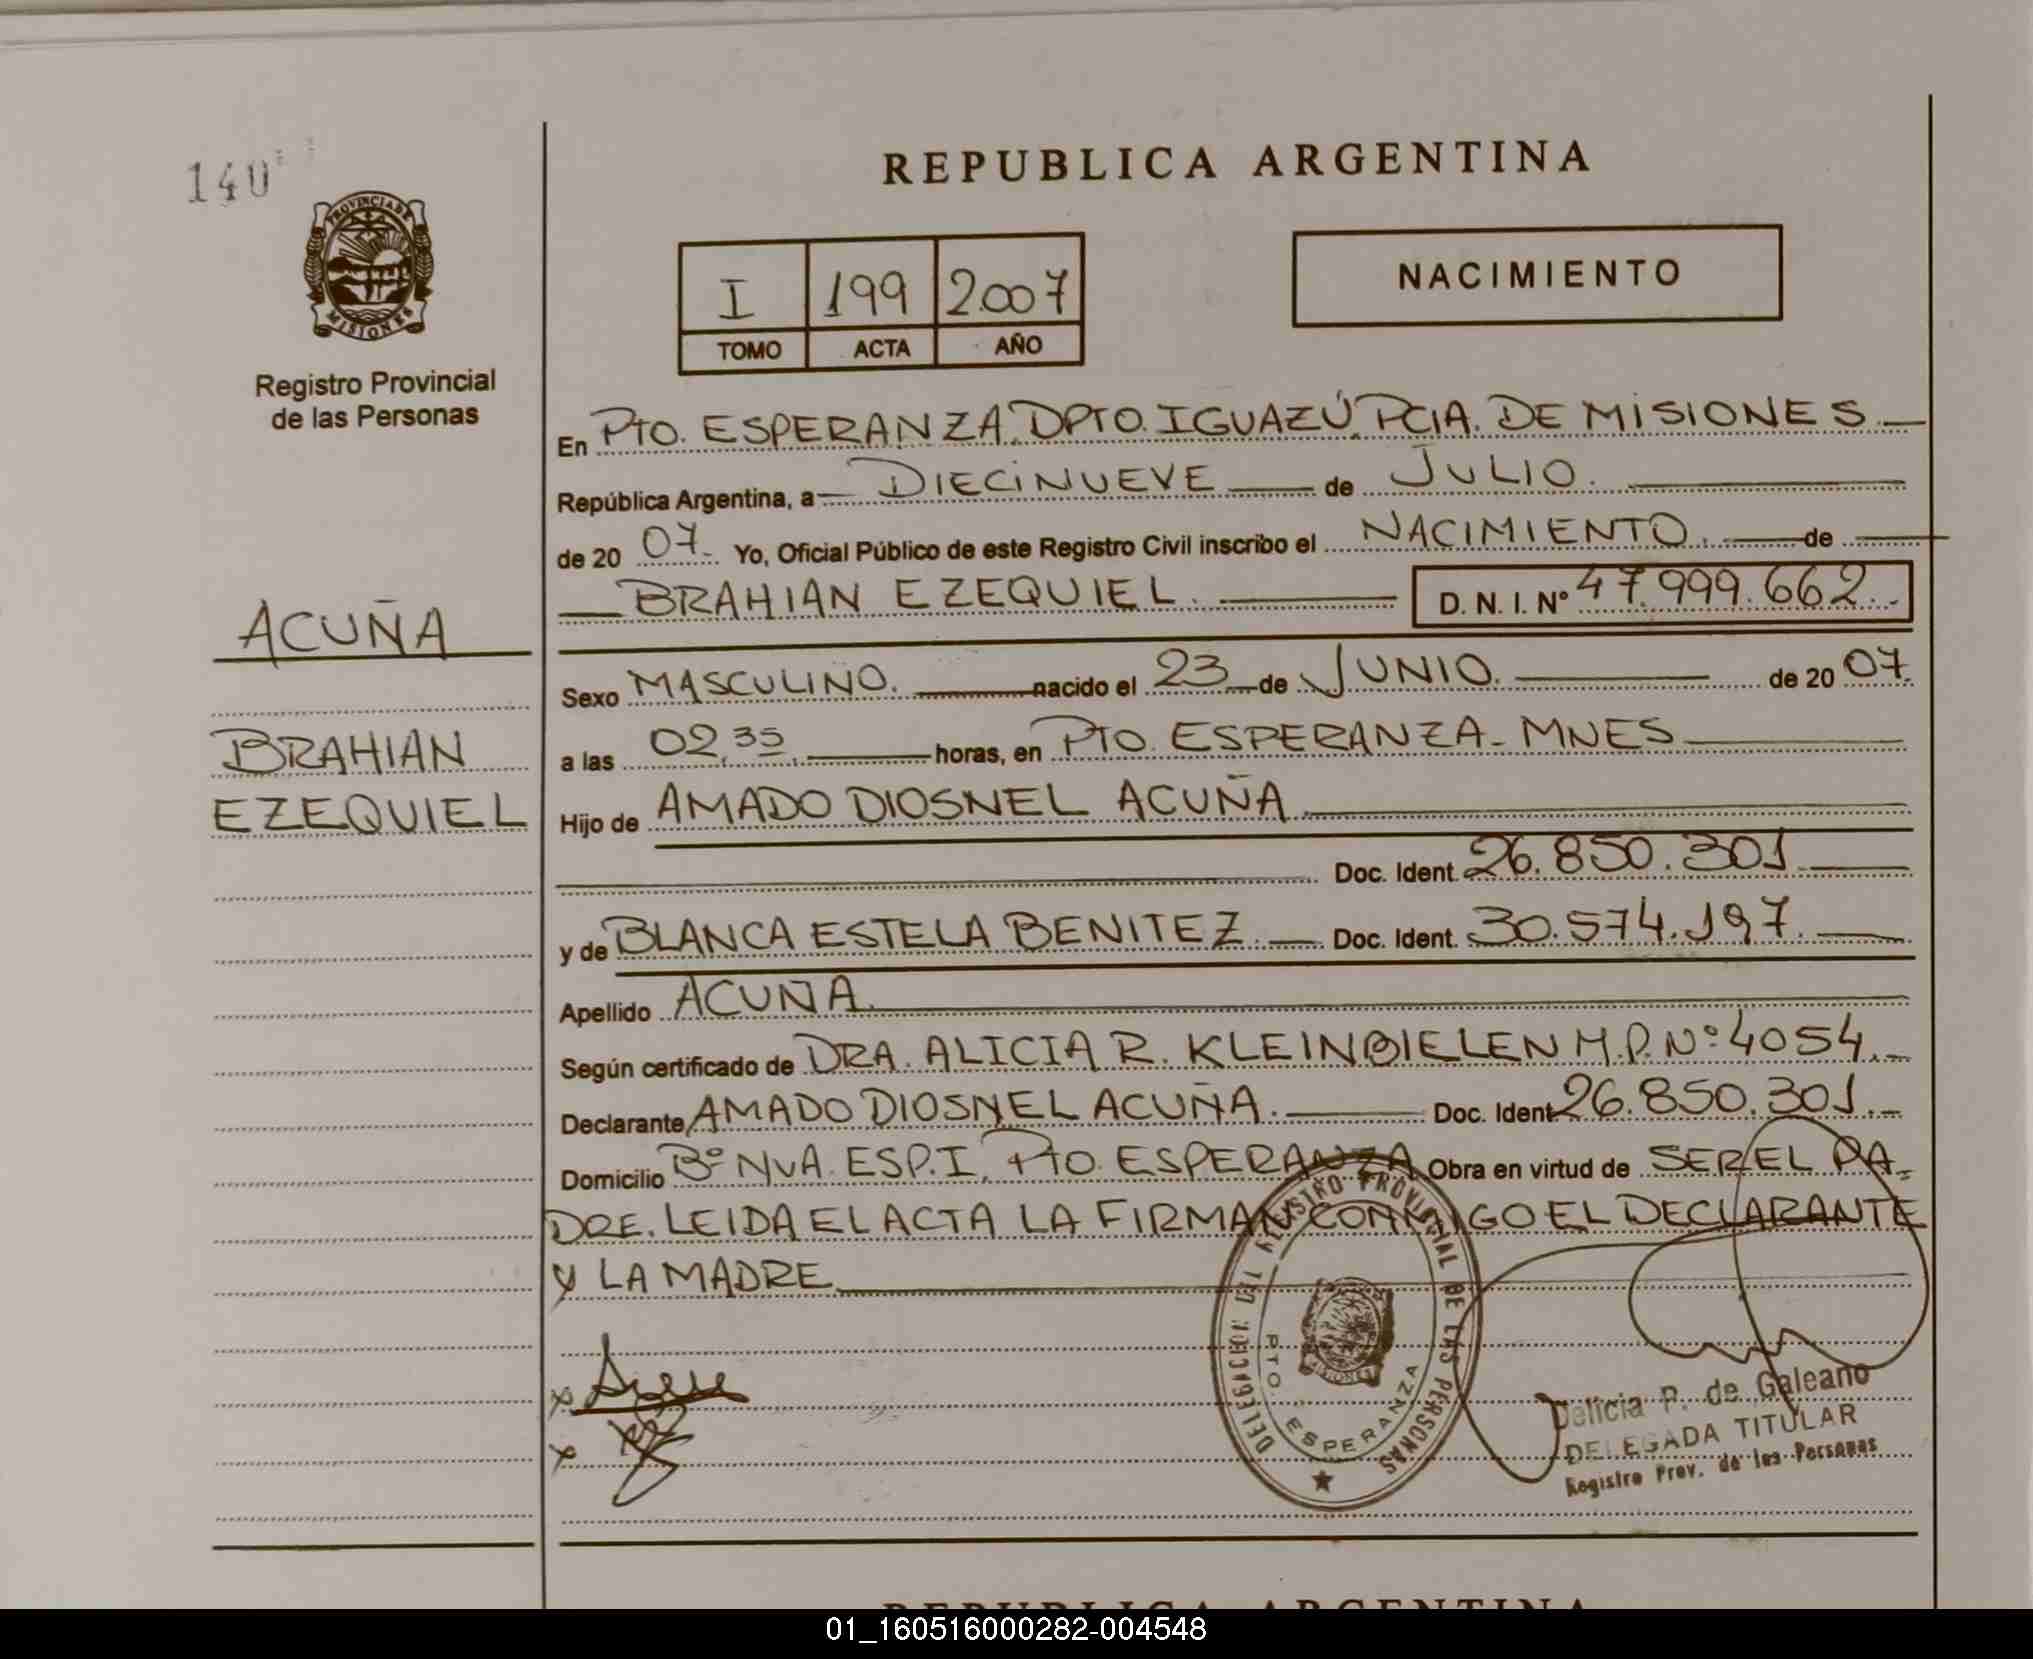 140
REPUBLICA ARGENTINA
PROVINCIA DE
MISIONES
Registro Provincial
de las Personas
I 199 2007
TOMO ACTA AÑO
NACIMIENTO
En PTO. ESPERANZA, DPTO. IGUAZÚ, PCIA. DE MISIONES
República Argentina, a DIECINUEVE de JULIO.
de 20 07. Yo, Oficial Público de este Registro Civil inscribo el NACIMIENTO. de
BRAHIAN EZEQUIEL. D. N. I. Nº 47.999.662.
ACUÑA
BRAHIAN
EZEQUIEL
Sexo MASCULINO. nacido el 23 de JUNIO. de 20 07.
a las 02,35. horas, en PTO. ESPERANZA - MNES
Hijo de AMADO DIOSNEL ACUÑA
Doc. Ident. 26.850.301
y de BLANCA ESTELA BENITEZ. Doc. Ident. 30.574.197.
Apellido ACUÑA.
Según certificado de DRA. ALICIA R. KLEINBIELEN M.P. Nº 4054.
Declarante AMADO DIOSNEL ACUÑA. Doc. Ident 26.850.301.
Domicilio Bº NVA. ESP. I, PTO. ESPERANZA Obra en virtud de SER EL PA
DRE. LEIDA EL ACTA LA FIRMAN CONMIGO EL DECLARANTE
Y LA MADRE
DELEGACION DEL REGISTRO PROVINCIAL DE LAS PERSONAS
PTO. ESPERANZA
MISIONES
Delicia P. de Galeano
DELEGADA TITULAR
Registro Prov. de las Personas
REPUBLICA ARGENTINA
01_160516000282-004548